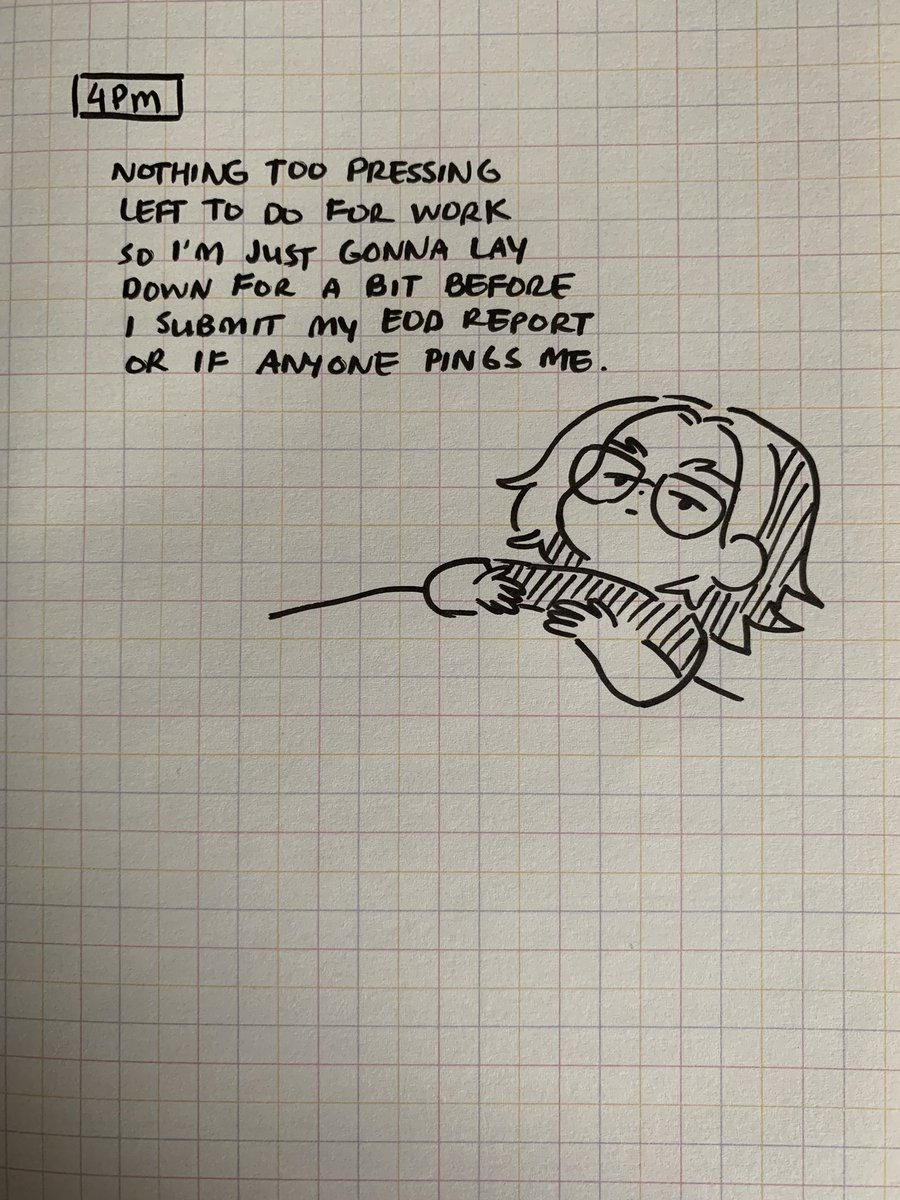 4PM
NOTHING TOO PRESSING
LEFT TO DO FOR WORK
SO I'M JUST GONNA LAY
DOWN FOR A BIT BEFORE
I SUBMIT MY EOD REPORT
OR IF ANYONE PINGS ME.